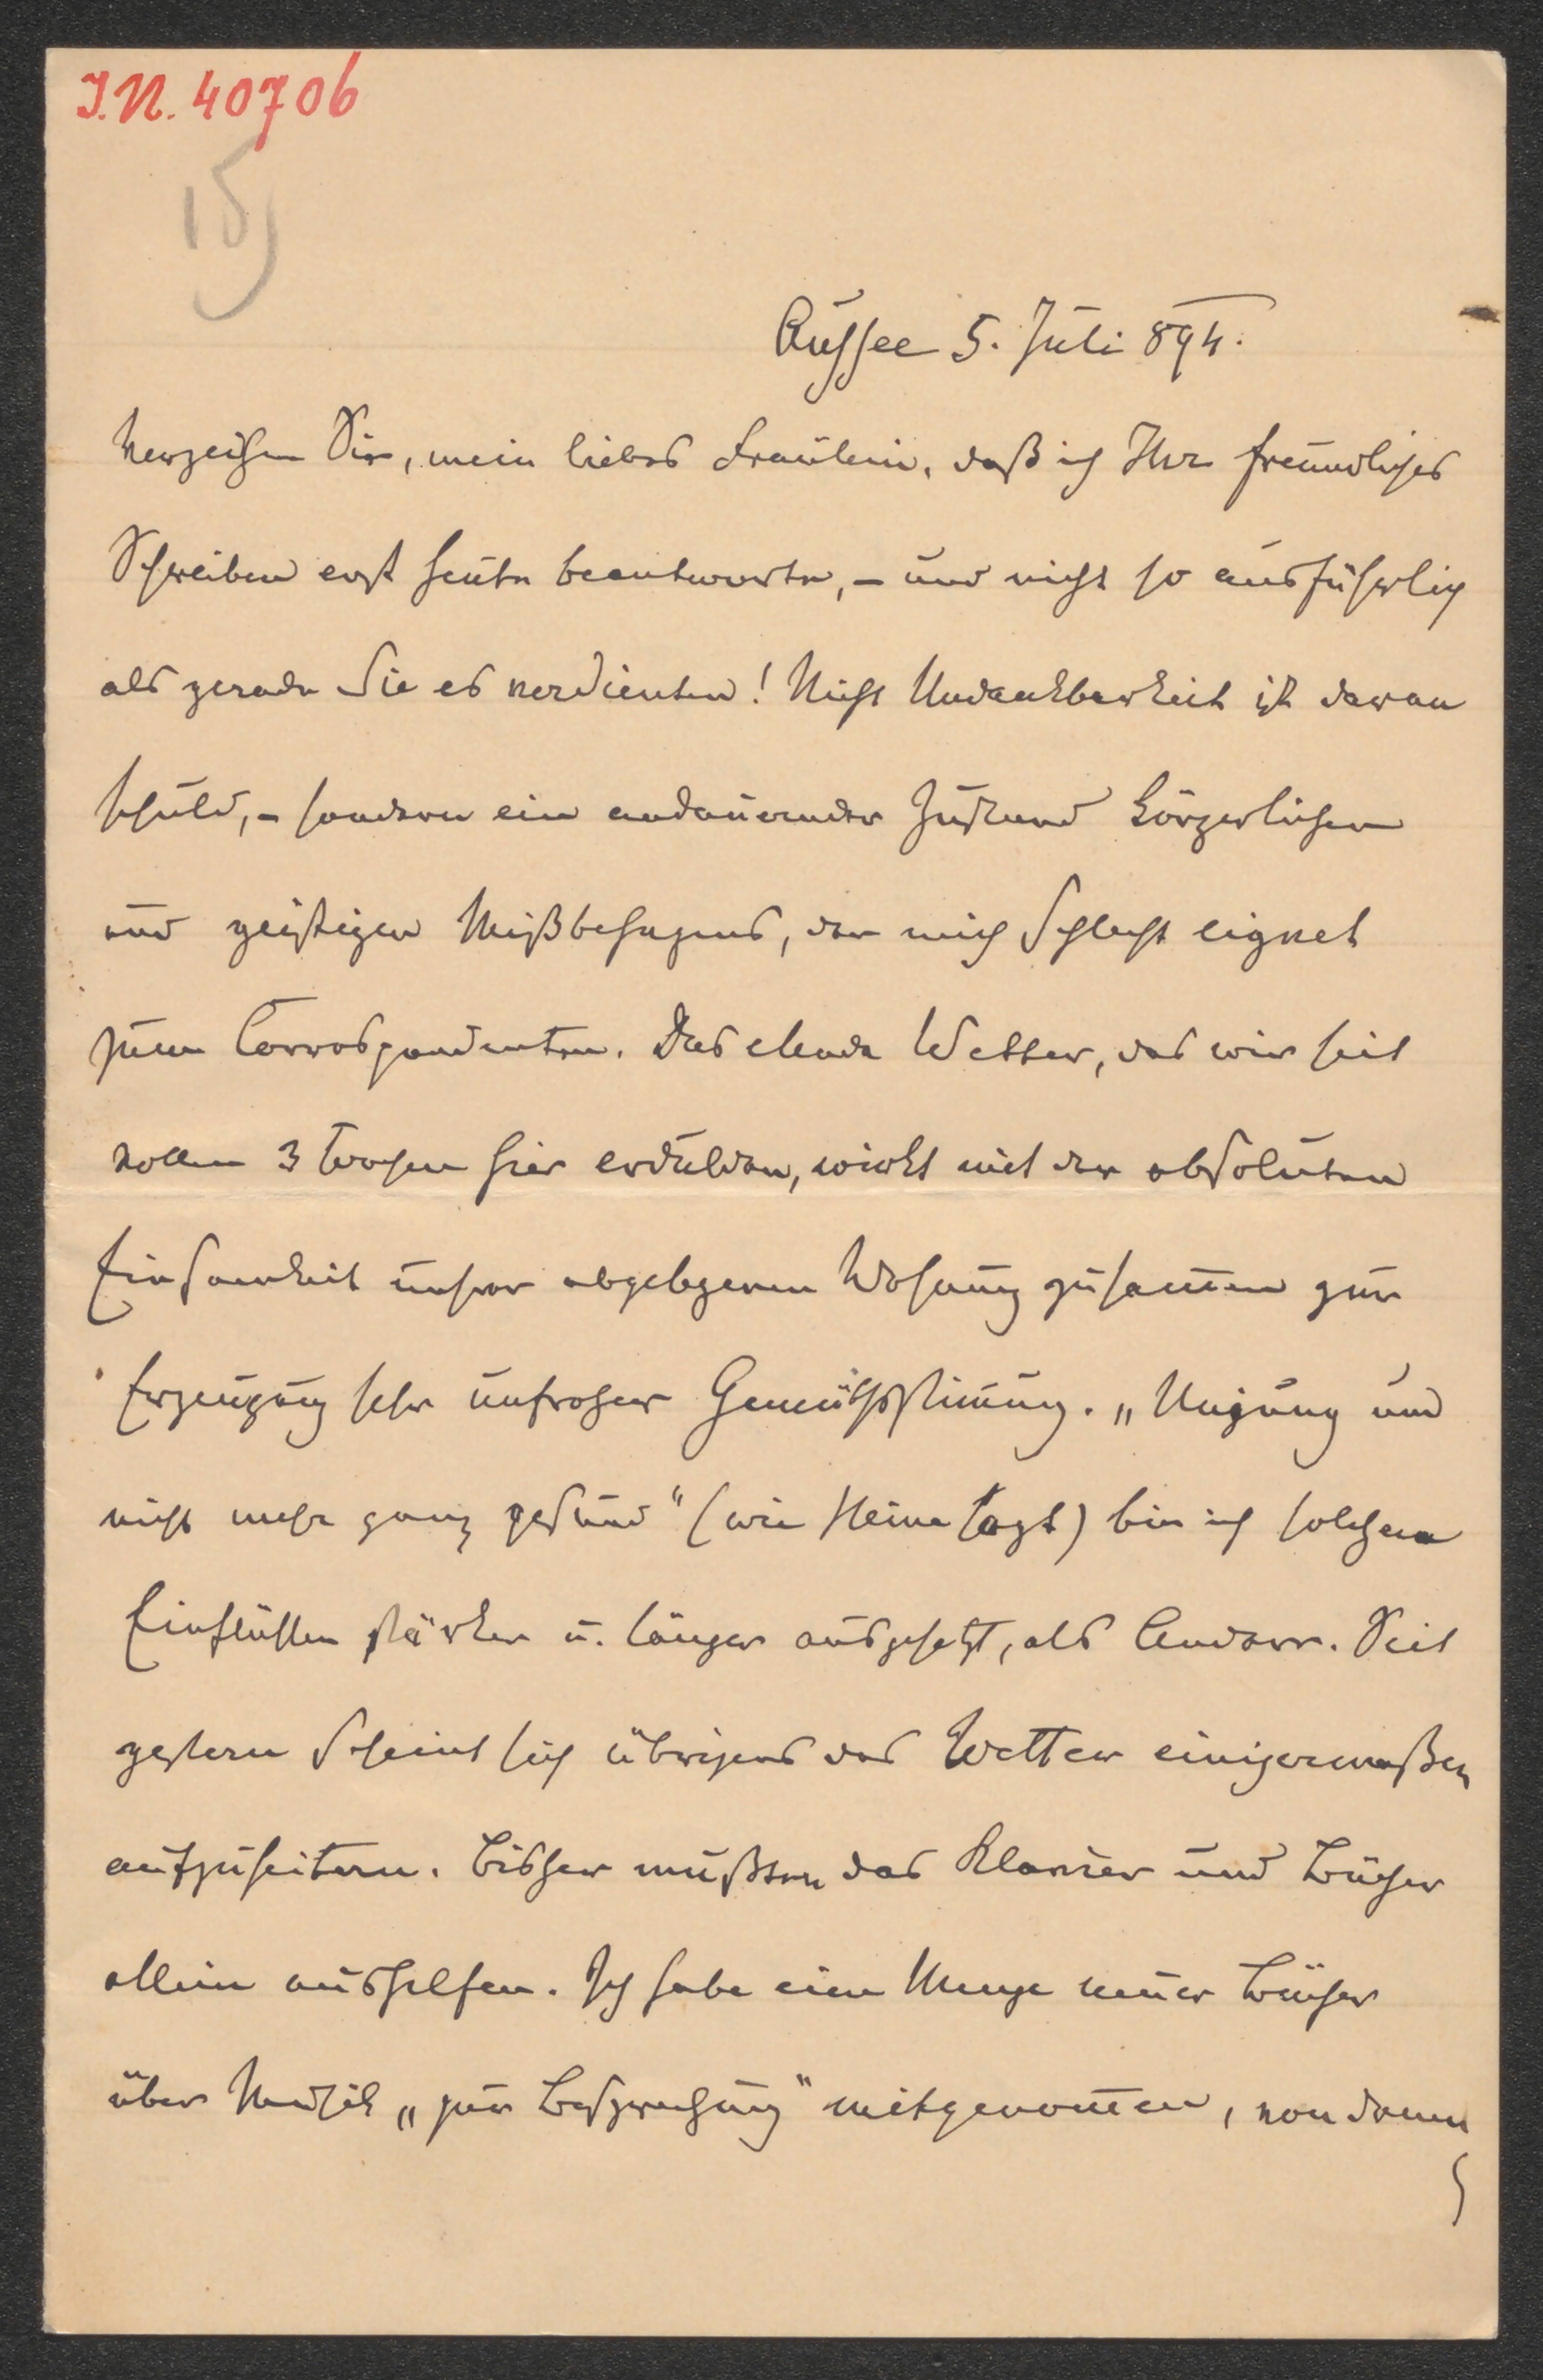 I.N. 40706
15)
Aussee 5. Juli 894.
Verzeihen Sie, mein liebes Fräulein, daß ich Ihr freundliches
Schreiben erst heute beantworte, – und nicht so ausführlich
als gerade Sie es verdienten! Nicht Undankbarkeit ist daran
schuld, – sondern ein andauernder Zustand körperlichen
und geistigen Mißbehagens, der mich schlecht eignet
zum Correspondenten. Das elende Wetter, das wir seit
vollen 3 Wochen hier erdulden, wirkt mit der absoluten
Einsamkeit unsrer abgelegenen Wohnung zusam̅en zur
Erzeugung sehr unfroher Gemüthsstim̅ung. „Unjung und
nicht mehr ganz gesund“ (wie Heine sagt) bin ich solchen
Einflüssen stärker u. länger ausgesetzt, als Andere. Seit
gestern scheint sich übrigens das Wetter einigermaßen
aufzuheitern. Bisher mußten das Klavier und Bücher
allein aushelfen. Ich habe eine Menge neuer Bücher
über Musik „zur Besprechung“ mitgenom̅en, von denen